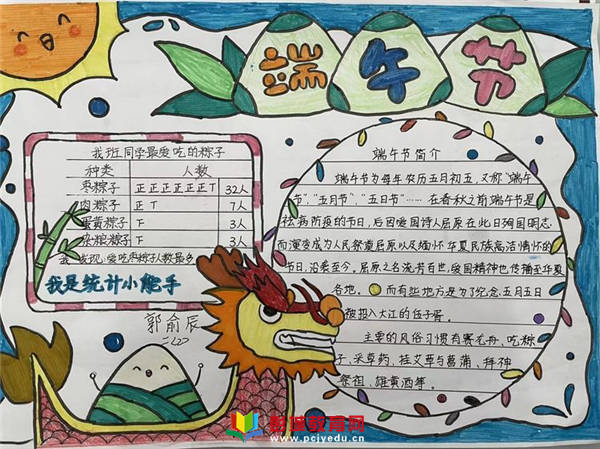 端午节
我班同学最爱吃的粽子
种类 人数
枣粽子 正正正正正正丅 32人
肉粽子 正丅 7人
蛋黄粽子 下 3人
杂粮粽子 下 3人
我发现:爱吃枣粽子人数最多
我是统计小能手
郭俞辰
端午节简介
端午节为每年农历五月初五,又称“端午
节”、“五月节”、“五日节”……在春秋之前端午节是
祛病防疫的节日,后因爱国诗人屈原在此日殉国明志
而演变成为人民祭奠屈原以及缅怀华夏民族高洁情怀的
节日,沿袭至今,屈原之名流芳百世,爱国精神也传播至华夏
各地。而有些地方是为了纪念五月五日
被投入大江的伍子胥。
主要的风俗习惯有赛龙舟、吃粽
子、采草药、挂艾草与菖蒲、拜神
祭祖、雄黄酒等。
教育网
www.pcjyedu.cn